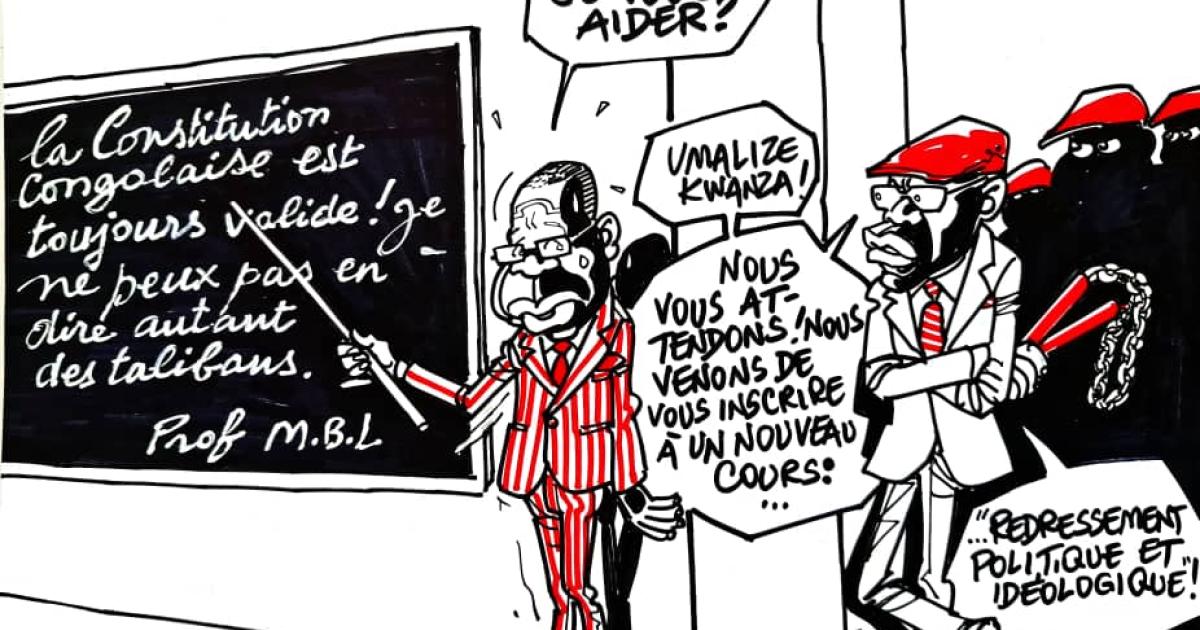 la Constitution
Congolaise est
toujours valide! Je
ne peux pas en -
dire autant
des talibans.
Prof M.B.L
AIDER?
UMALIZE
KWANZA!
NOUS
VOUS AT-
TENDONS! NOUS
VENONS DE
VOUS INSCRIRE
À UN NOUVEAU
COURS:
...
"REDRESSEMENT
...POLITIQUE ET
IDÉOLOGIQUE"!